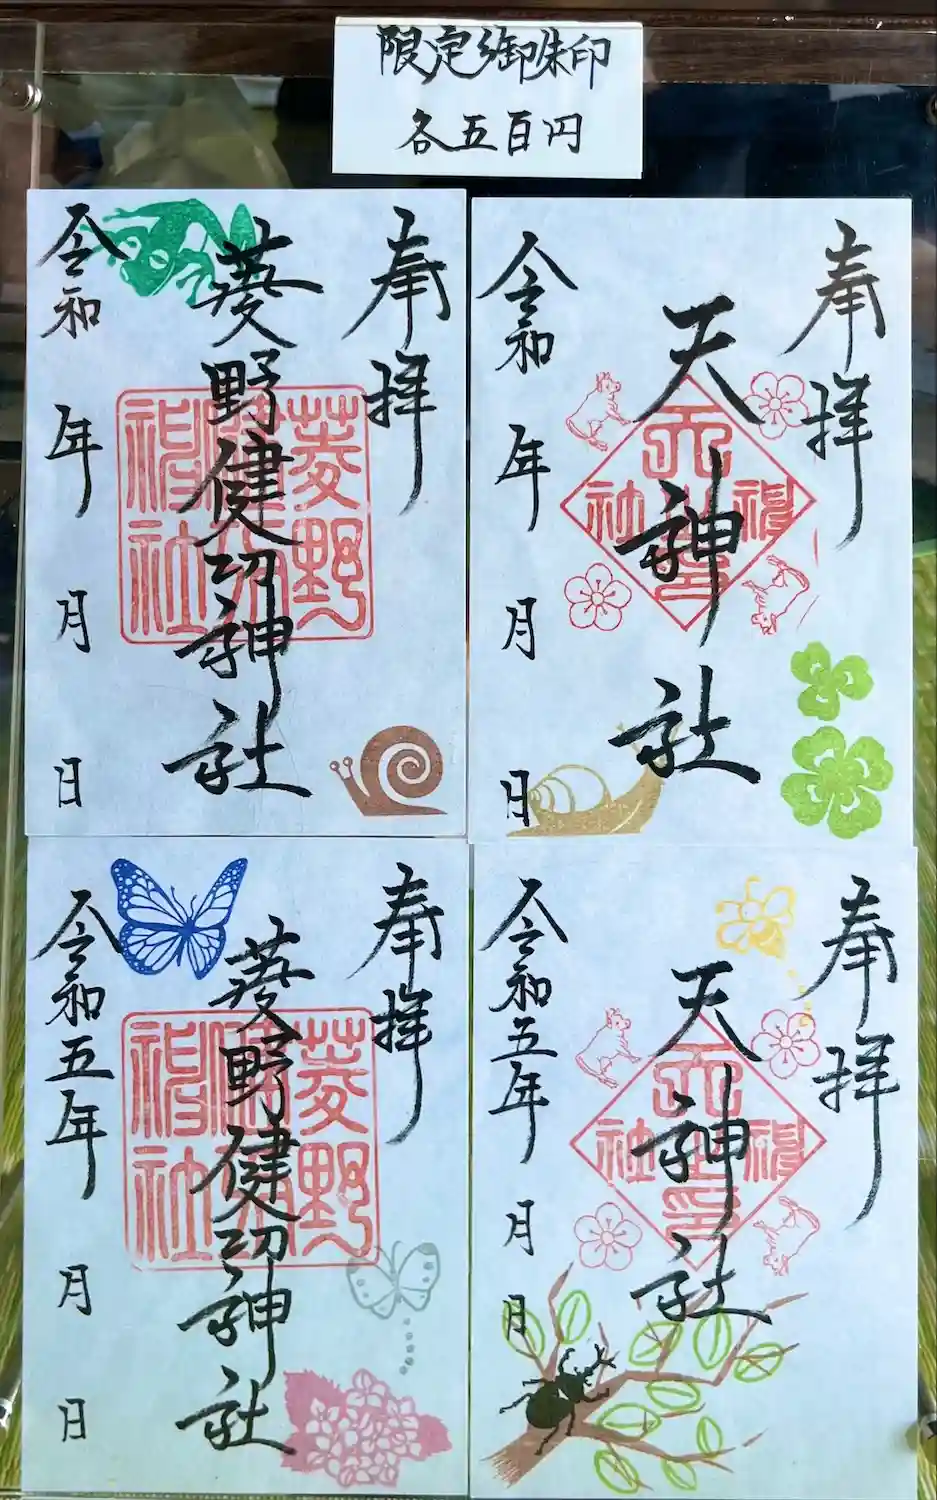 限定御朱印
各五百円
奉拝
菱野健功神社
菱野
健功
神社
令和 年 月 日
奉拝
天神社
天
神
社
印
令和 年 月 日
奉拝
菱野健功神社
菱野
健功
神社
令和五年 月 日
奉拝
天神社
天
神
社
印
令和五年 月 日